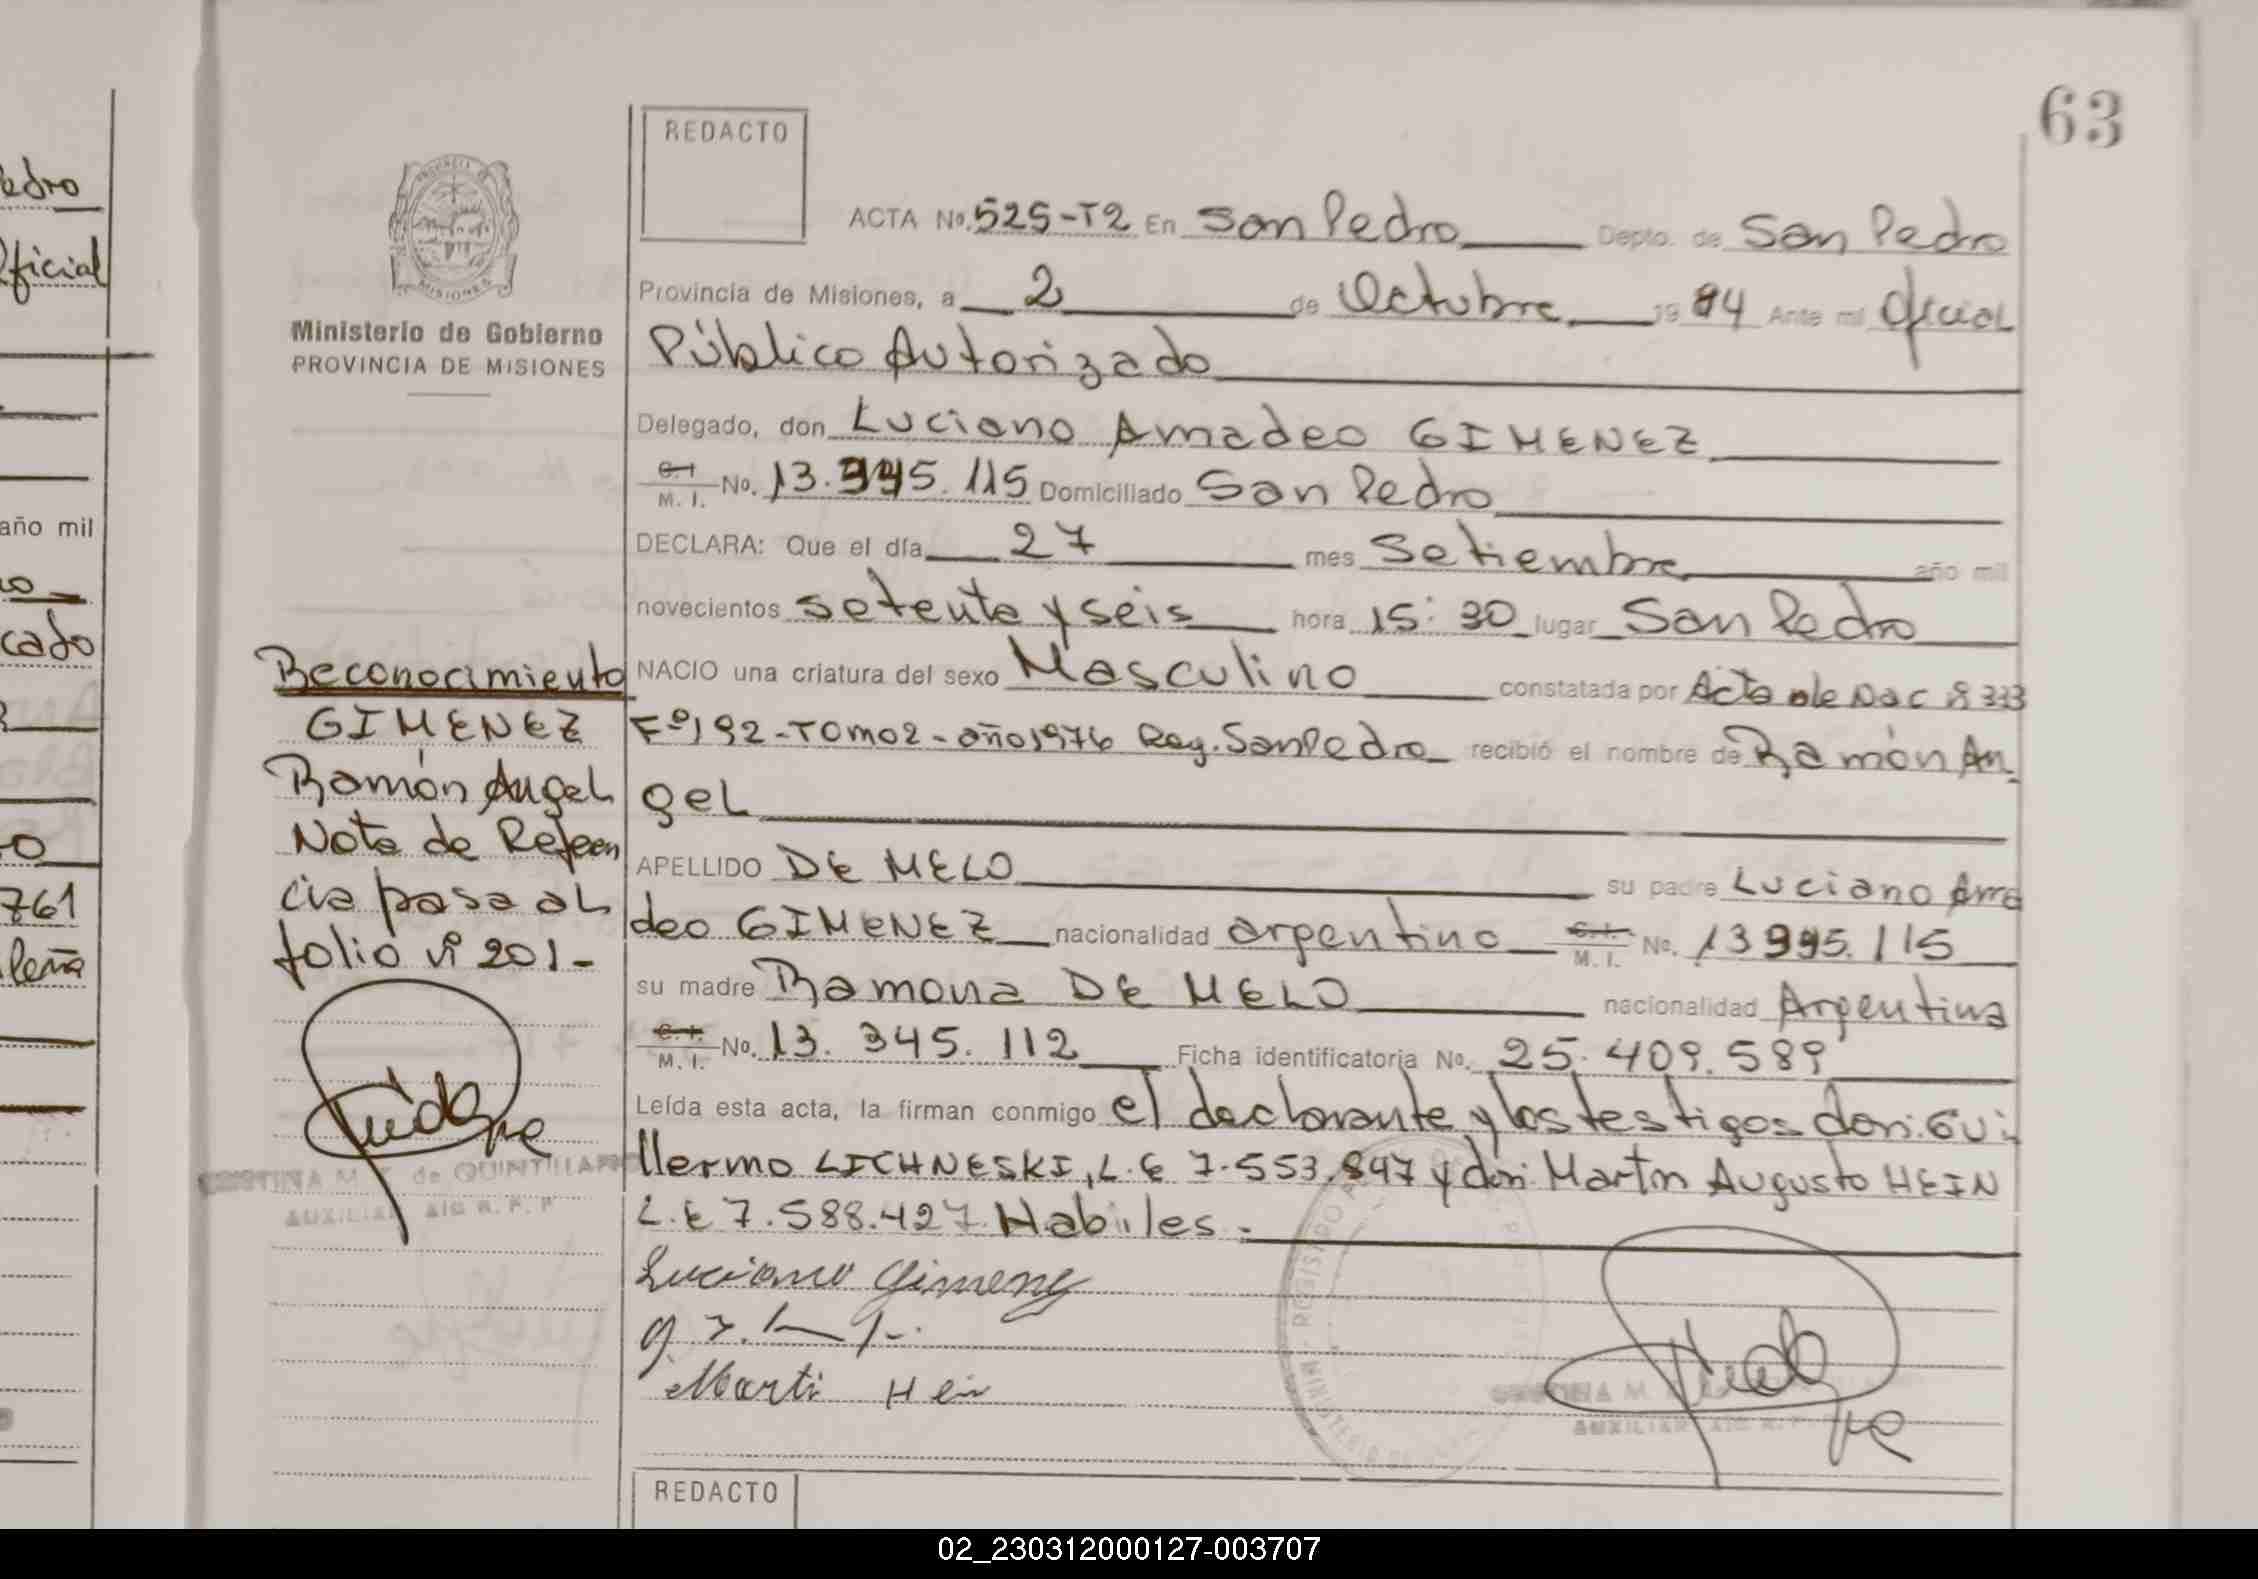 63
REDACTO
ACTA No. 525-T2 En San Pedro Depto. de San Pedro
Provincia de Misiones, a 2 de Octubre 1984 Ante mi Oficial
Público Autorizado
Delegado, don Luciano Amadeo GIMENEZ
C.I. M. I. No. 13.995.115 Domiciliado San Pedro
DECLARA: Que el día 27 mes Setiembre año mil
novecientos setenta y seis hora 15:30 lugar San Pedro
NACIO una criatura del sexo Masculino constatada por Acta de Nac 333
Fº 192-TOMO2-año1976 Reg. San Pedro recibió el nombre de Ramón An
gel
APELLIDO DE MELO su padre Luciano Ama
deo GIMENEZ nacionalidad argentino C.I. M. I. No. 13995.115
su madre Ramona DE MELO nacionalidad Argentina
C.I. M. I. No. 13. 345. 112 Ficha identificatoria No. 25. 409. 589
Leída esta acta, la firman conmigo el declarante y los testigos don: Gui
llermo LICHNESKI, L.E 7.553.847 y don: Martin Augusto HEIN
L.E 7.588.427 Habiles.-
Luciano Gimenez
Martin Hein
REDACTO
PROVINCIA DE
MISIONES
Ministerio de Gobierno
PROVINCIA DE MISIONES
Reconocimiento
GIMENEZ
Ramón Angel
Nota de Referen
cia pasa al
folio nº 201-
de QUINTILIANO
AUXILIAR
AUXILIAR
REGISTRO
MINISTERIO DE
edro
Oficial
año mil
cado
761
leña
02_230312000127-003707